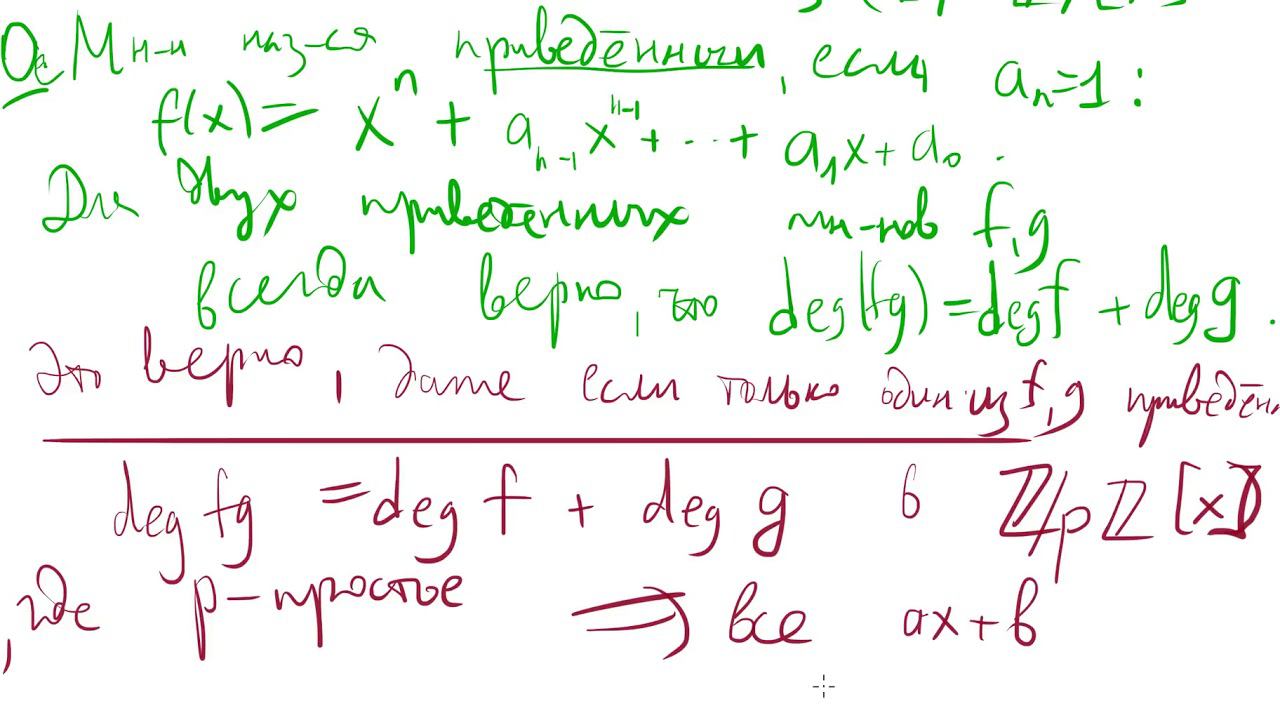 Оп. Мн-н наз-ся приведённым, если aₙ=1 :
f(x) = xⁿ + aₙ₋₁xⁿ⁻¹ + ... + a₁x + a₀.
Для двух приведённых мн-нов f, g
всегда верно, что deg(fg) = deg f + deg g.
Это верно, даже если только один из f, g приведён.
deg fg = deg f + deg g в ℤ/pℤ [x]
, где p - простое ⟹ все ax+b